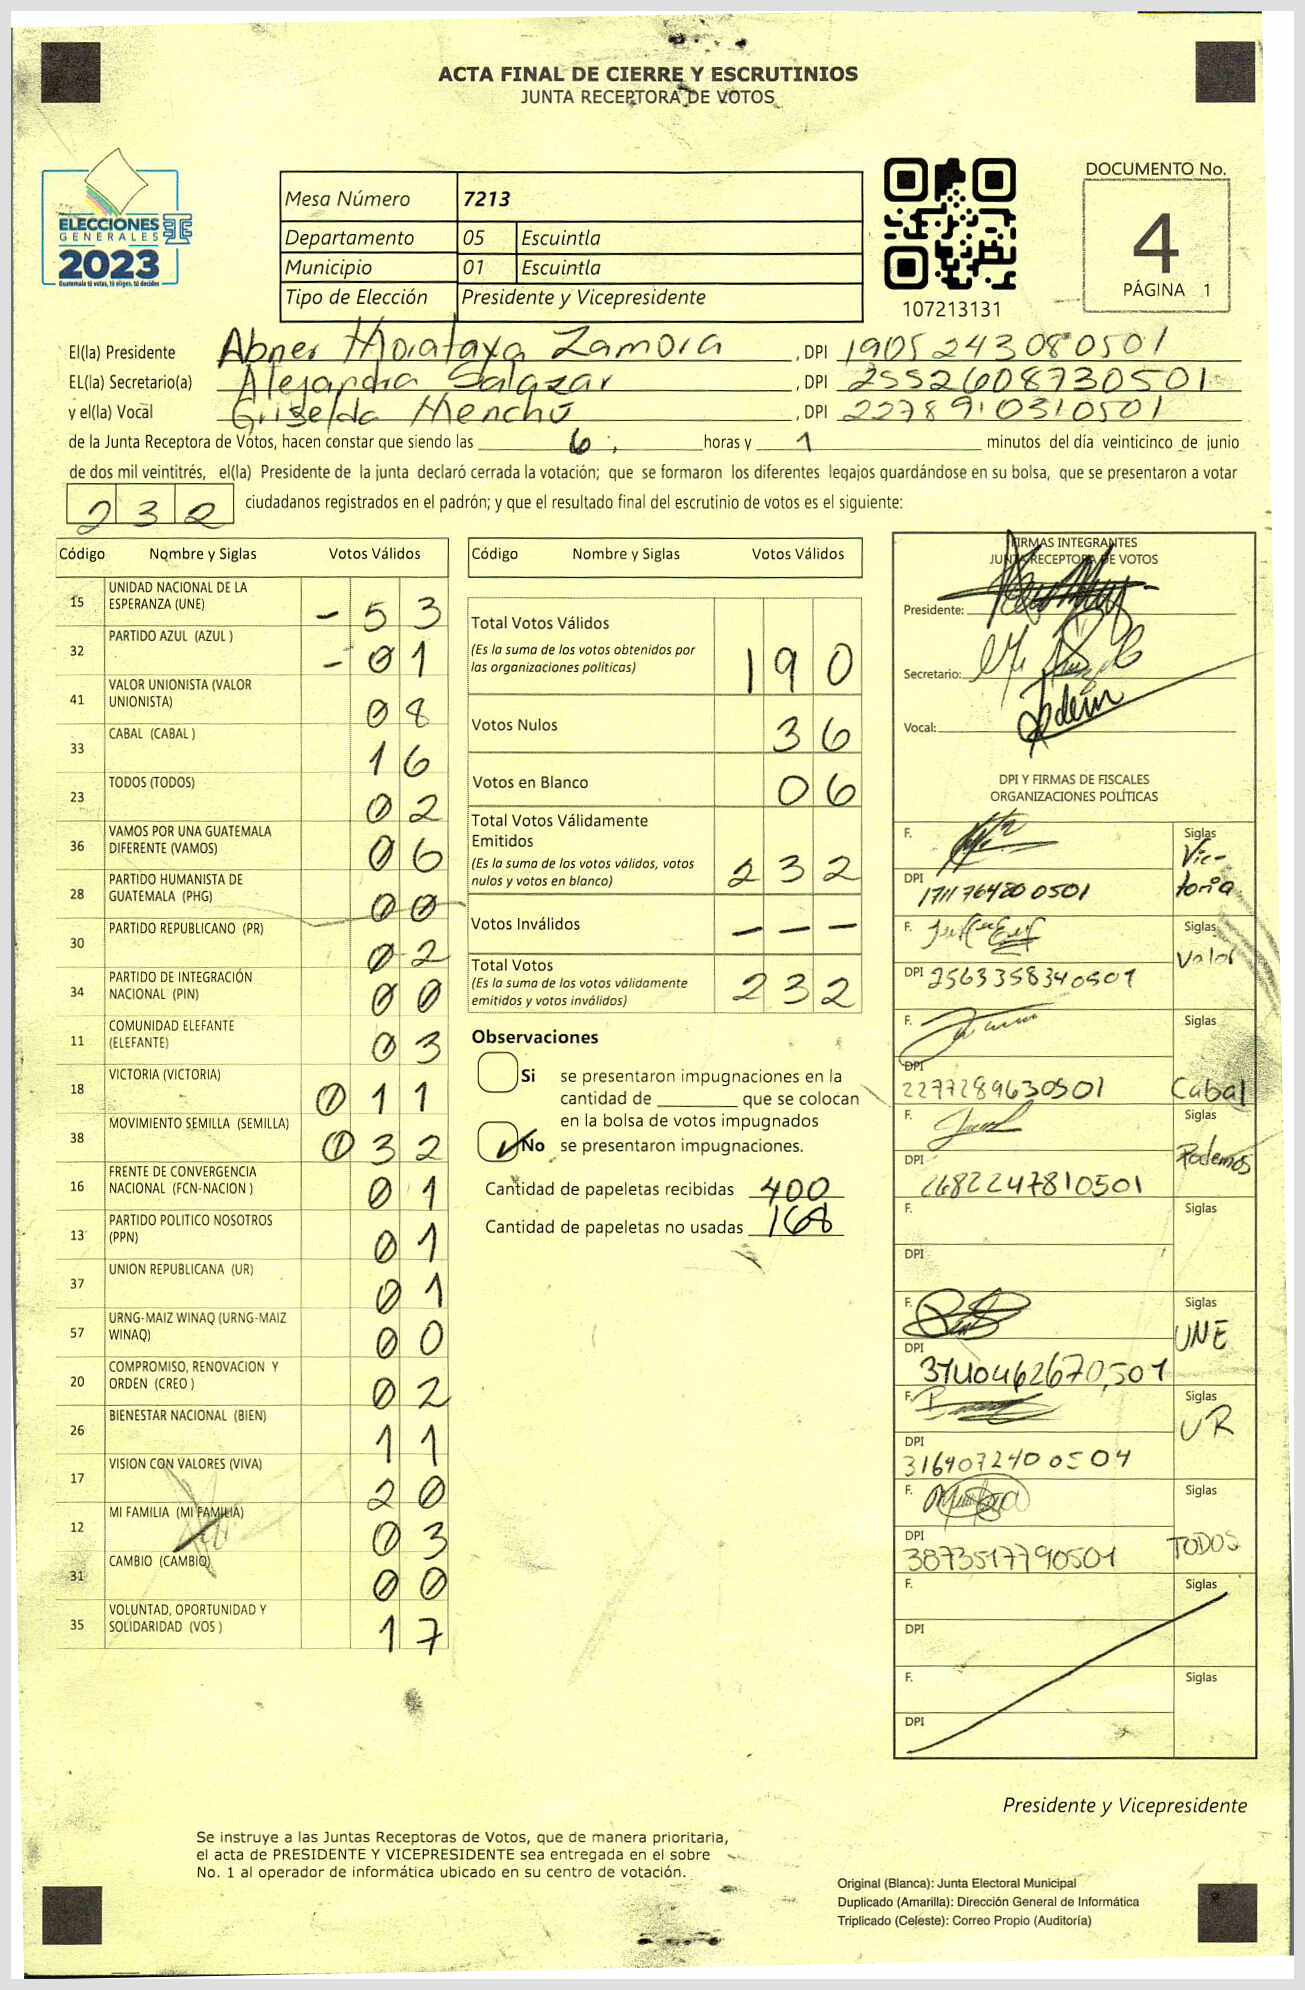 ACTA FINAL DE CIERRE Y ESCRUTINIOS
JUNTA RECEPTORA DE VOTOS
ELECCIONES
GENERALES
2023
Guatemala tú votas, tú eliges, tú decides
Mesa Número 7213
Departamento 05 Escuintla
Municipio 01 Escuintla
Tipo de Elección Presidente y Vicepresidente
107213131
DOCUMENTO No.
4
PÁGINA 1
El(la) Presidente Abner Morataya Zamora, DPI 1905243080501
EL(la) Secretario(a) Alejandra Salazar, DPI 2552608730501
y el(la) Vocal Griselda Menchú, DPI 2278910310501
de la Junta Receptora de Votos, hacen constar que siendo las 6: horas y 1 minutos del día veinticinco de junio
de dos mil veintitrés, el(la) Presidente de la junta declaró cerrada la votación; que se formaron los diferentes legajos quardándose en su bolsa, que se presentaron a votar
232 ciudadanos registrados en el padrón; y que el resultado final del escrutinio de votos es el siguiente:
Código Nombre y Siglas Votos Válidos
15 UNIDAD NACIONAL DE LA ESPERANZA (UNE) - 53
32 PARTIDO AZUL (AZUL ) - 01
41 VALOR UNIONISTA (VALOR UNIONISTA) 08
33 CABAL (CABAL ) 16
23 TODOS (TODOS) 02
36 VAMOS POR UNA GUATEMALA DIFERENTE (VAMOS) 06
28 PARTIDO HUMANISTA DE GUATEMALA (PHG) 00
30 PARTIDO REPUBLICANO (PR) 02
34 PARTIDO DE INTEGRACIÓN NACIONAL (PIN) 00
11 COMUNIDAD ELEFANTE (ELEFANTE) 03
18 VICTORIA (VICTORIA) 011
38 MOVIMIENTO SEMILLA (SEMILLA) 032
16 FRENTE DE CONVERGENCIA NACIONAL (FCN-NACION ) 01
13 PARTIDO POLITICO NOSOTROS (PPN) 01
37 UNION REPUBLICANA (UR) 01
57 URNG-MAIZ WINAQ (URNG-MAIZ WINAQ) 00
20 COMPROMISO, RENOVACION Y ORDEN (CREO ) 02
26 BIENESTAR NACIONAL (BIEN) 11
17 VISION CON VALORES (VIVA) 20
12 MI FAMILIA (MI FAMILIA) 03
31 CAMBIO (CAMBIO) 00
35 VOLUNTAD, OPORTUNIDAD Y SOLIDARIDAD (VOS ) 17
Código Nombre y Siglas Votos Válidos
Total Votos Válidos
(Es la suma de los votos obtenidos por
las organizaciones políticas) 190
Votos Nulos 36
Votos en Blanco 06
Total Votos Válidamente
Emitidos
(Es la suma de los votos válidos, votos
nulos y votos en blanco) 232
Votos Inválidos - - -
Total Votos
(Es la suma de los votos válidamente
emitidos y votos inválidos) 232
Observaciones
Si se presentaron impugnaciones en la
cantidad de ________ que se colocan
en la bolsa de votos impugnados
No se presentaron impugnaciones.
Cantidad de papeletas recibidas 400
Cantidad de papeletas no usadas 168
FIRMAS INTEGRANTES
JUNTA RECEPTORA DE VOTOS
Presidente:
Secretario:
Vocal:
DPI Y FIRMAS DE FISCALES
ORGANIZACIONES POLÍTICAS
F. Siglas Victoria
DPI 1711764800501
F. Siglas Valor
DPI 2563358340501
F. Siglas Cabal
DPI 2277289630501
F. Siglas Podemos
DPI 2682247810501
F. Siglas
DPI
F. Siglas UNE
DPI 3140462670501
F. Siglas UR
DPI 3164072400504
F. Siglas TODOS
DPI 3873517790501
F. Siglas
DPI
F. Siglas
DPI
Presidente y Vicepresidente
Se instruye a las Juntas Receptoras de Votos, que de manera prioritaria,
el acta de PRESIDENTE Y VICEPRESIDENTE sea entregada en el sobre
No. 1 al operador de informática ubicado en su centro de votación.
Original (Blanca): Junta Electoral Municipal
Duplicado (Amarilla): Dirección General de Informática
Triplicado (Celeste): Correo Propio (Auditoría)